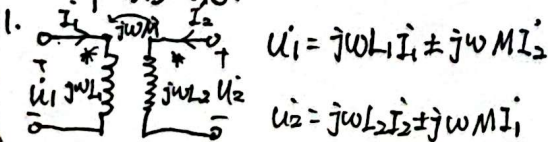 1. İ₁ jωM İ₂
* *
+ +
U̇₁ jωL₁ jωL₂ U̇₂
- -
U̇₁ = jωL₁İ₁ ± jωMİ₂
U̇₂ = jωL₂İ₂ ± jωMİ₁